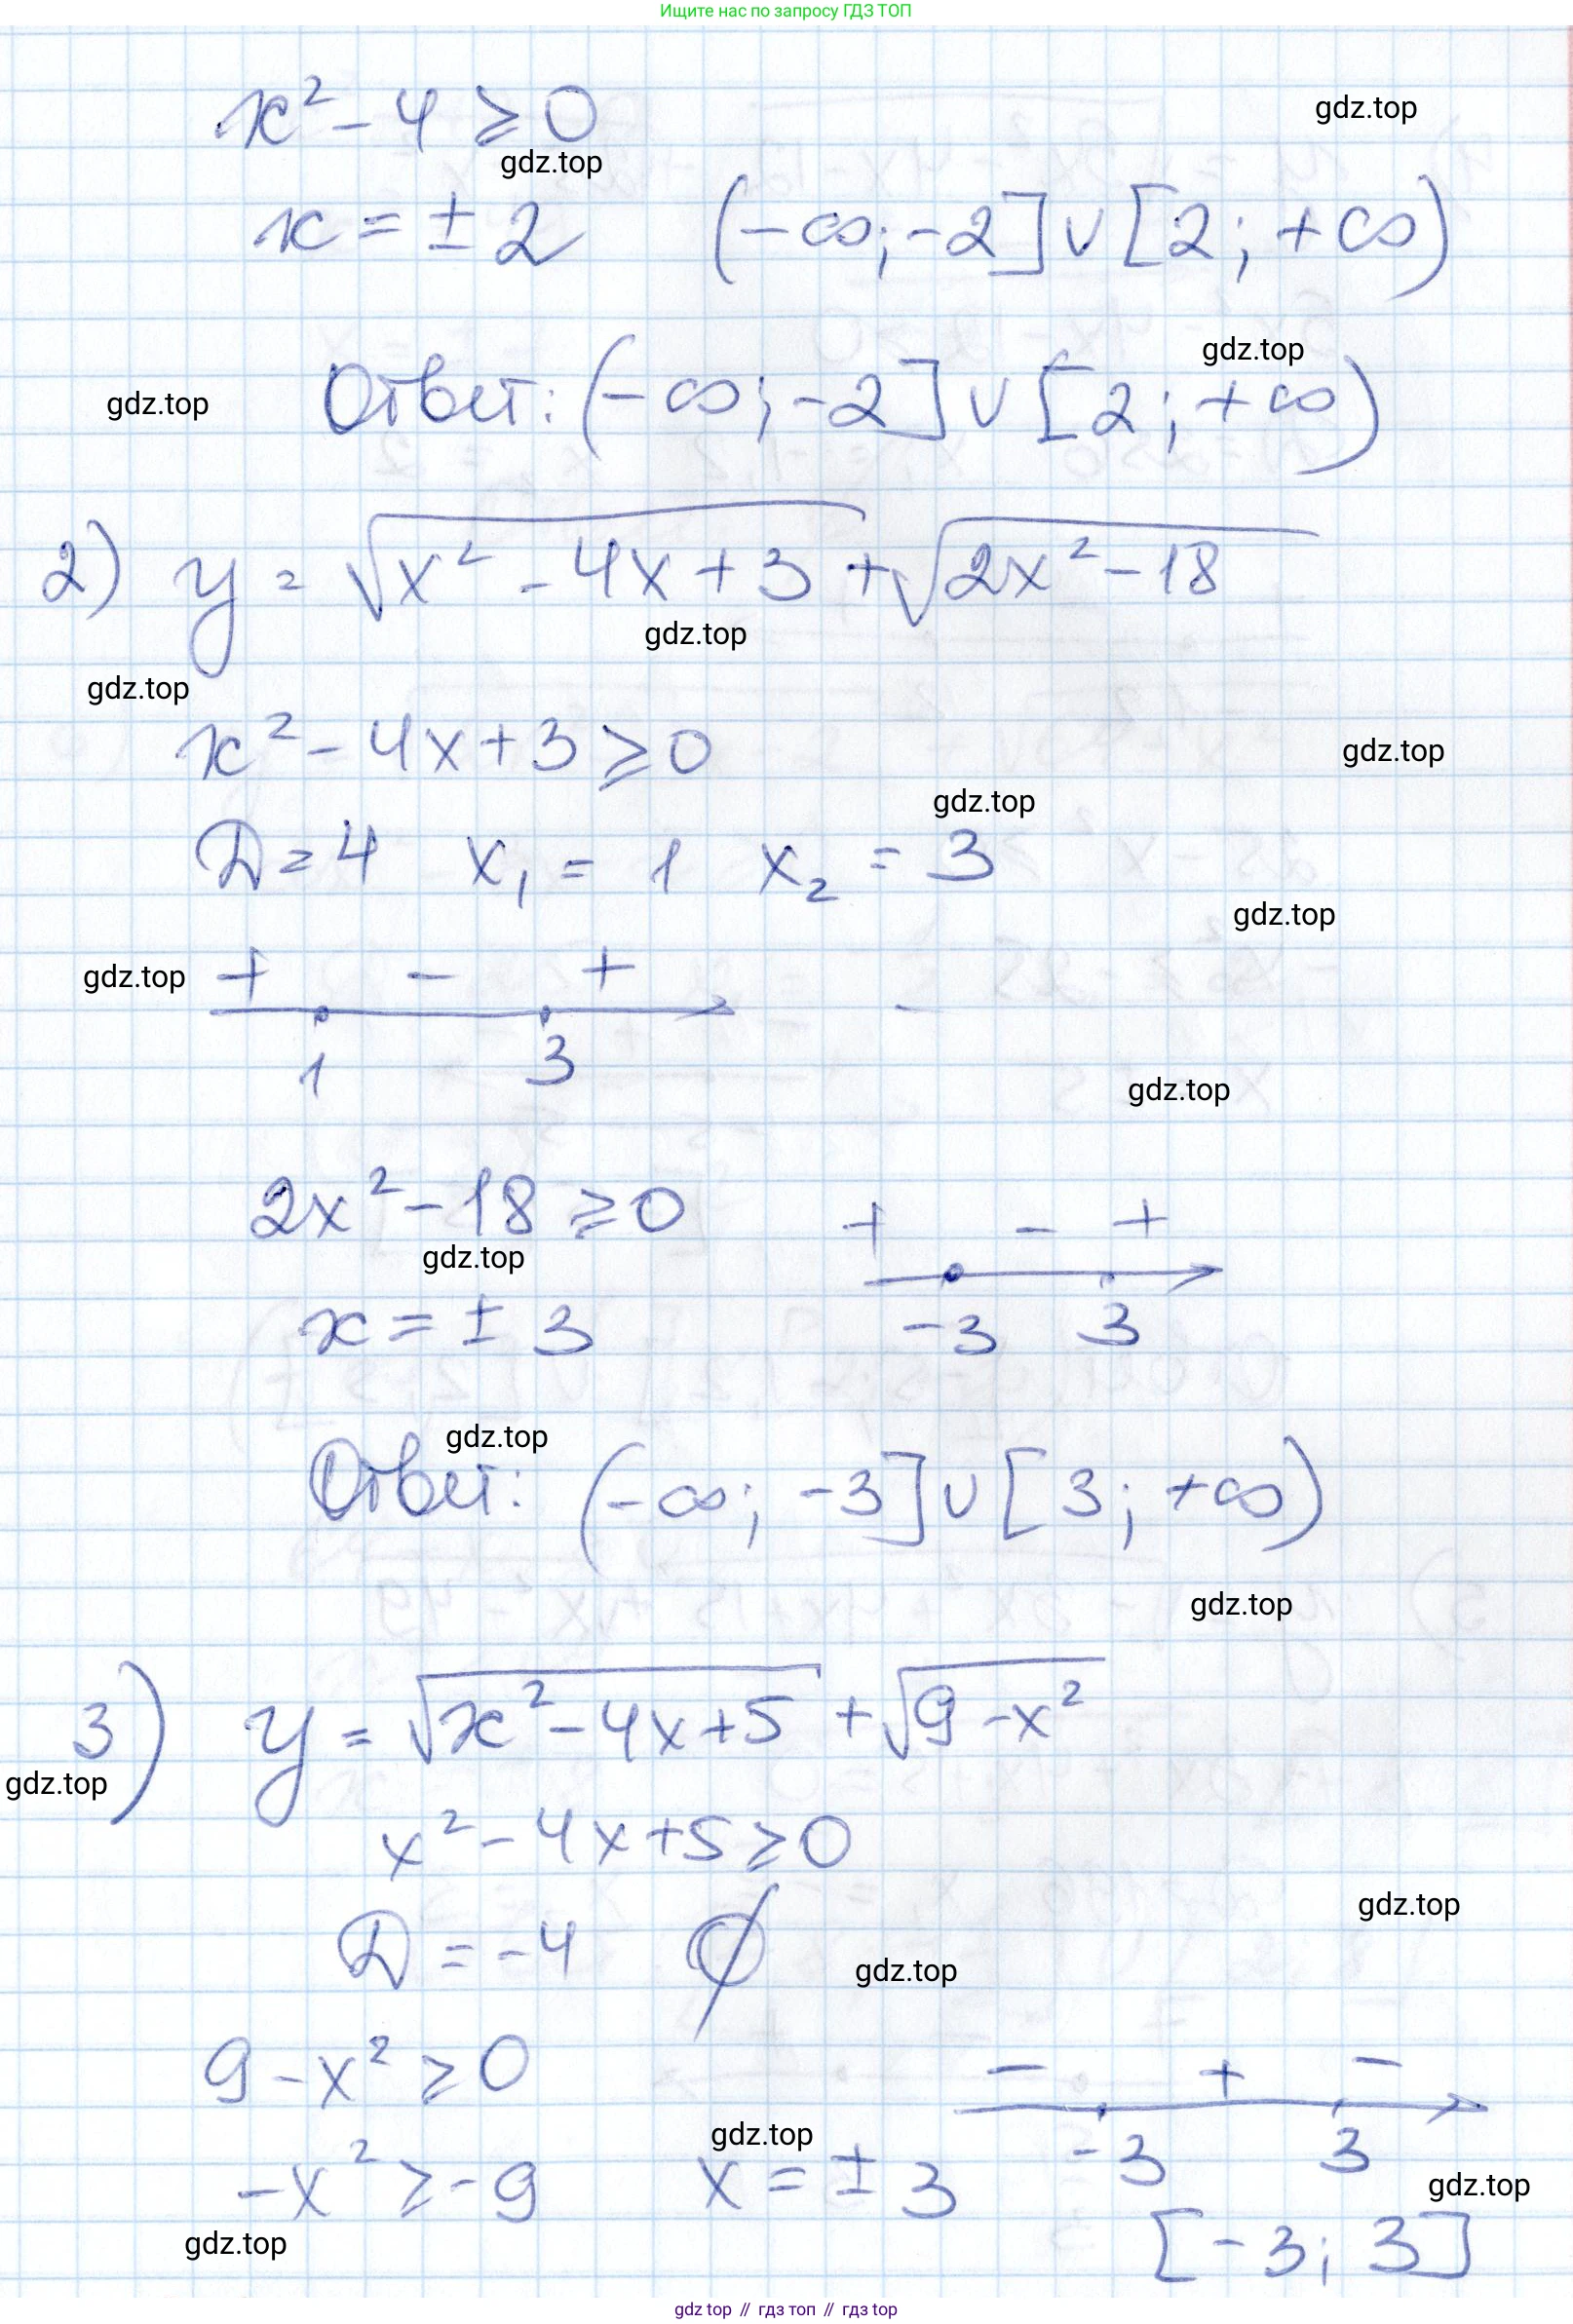 Ищите нас по запросу ГДЗ ТОП
x² - 4 ≥ 0
gdz.top
gdz.top
x = ± 2 (-∞; -2] ∪ [2; +∞)
gdz.top
gdz.top
Ответ: (-∞; -2] ∪ [2; +∞)
2) y = √(x² - 4x + 3) + √(2x² - 18)
gdz.top
gdz.top
x² - 4x + 3 ≥ 0
gdz.top
gdz.top
D = 4 x₁ = 1 x₂ = 3
gdz.top
gdz.top
+ - +
1 3
gdz.top
2x² - 18 ≥ 0
+ - +
gdz.top
x = ± 3
-3 3
gdz.top
Ответ: (-∞; -3] ∪ [3; +∞)
gdz.top
3) y = √(x² - 4x + 5) + √(9 - x²)
gdz.top
x² - 4x + 5 ≥ 0
gdz.top
D = -4 ∅
gdz.top
9 - x² ≥ 0
- + -
gdz.top
-3 3
-x² ≥ -9 x = ± 3
gdz.top
gdz.top
[-3; 3]
gdz top // гдз топ // гдз top